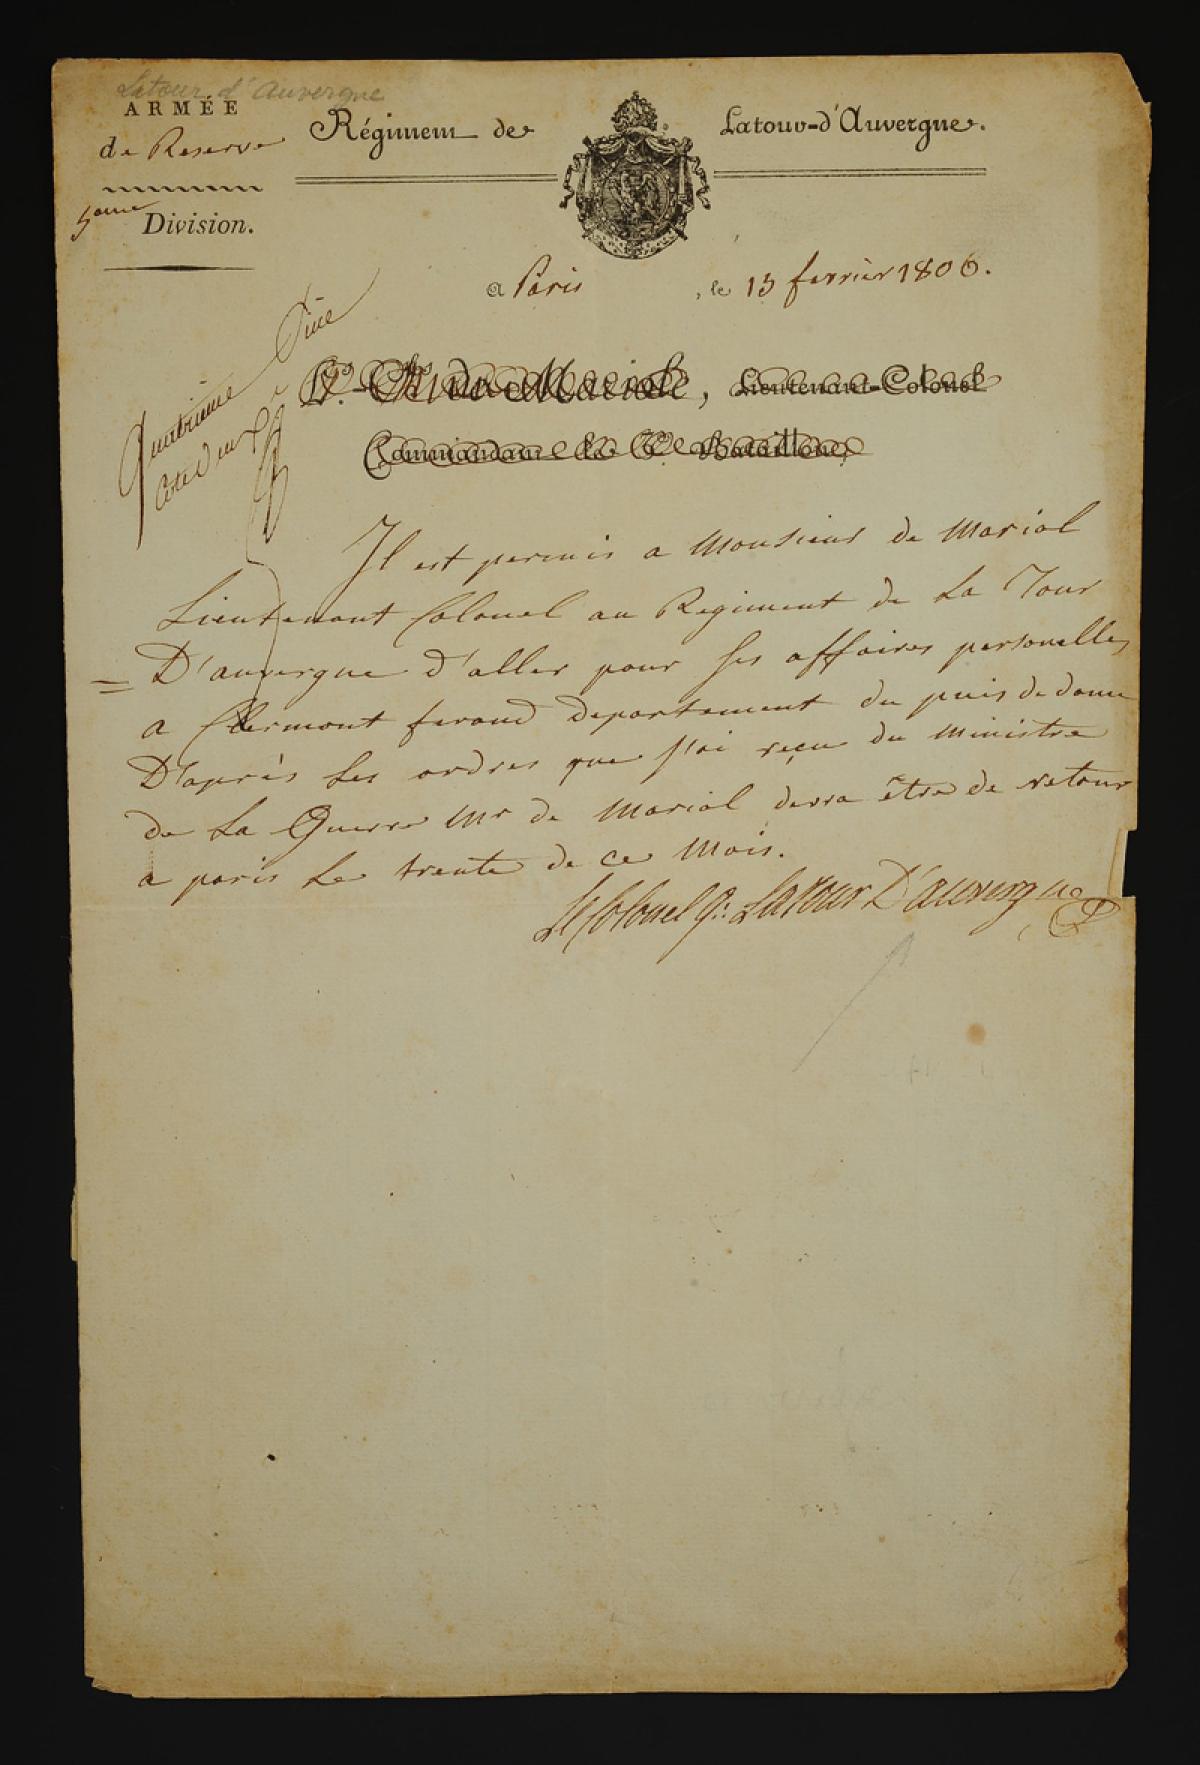 Latour d'Auvergne
ARMÉE
de Reserve
5eme
Division.
Régiment de Latour-d'Auvergne.
a Paris , le 13 fevrier 1806.
Quatrieme Piece
Cotté
de Mariole, Lieutenant-Colonel
Commandant le Bataillon,
Il est permis a Monsieur de Mariol
Lieutenant Colonel au Regiment de La Tour
D'auvergne d'aller pour ses affaires personelles
a Clermont ferand departement du puis de dome
D'après les ordres que j'ai reçu du Ministre
de La Guerre Mr de Mariol devra être de retour
a paris Le trente de ce Mois.
Le Colonel Latour D'auvergne